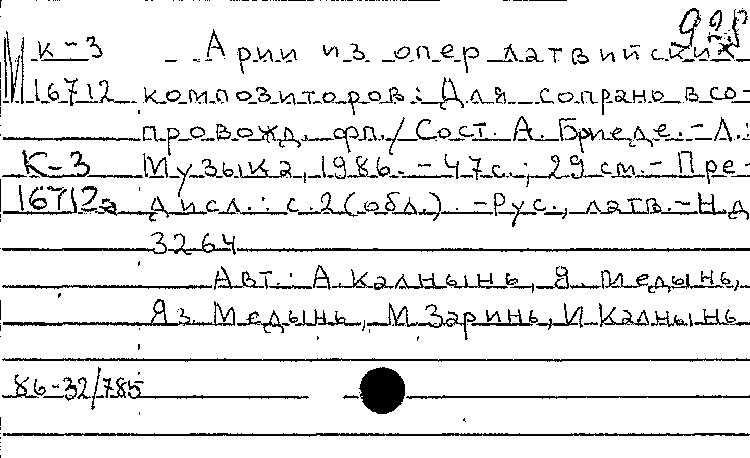 998
К-3 Арии из опер латвийских
16712 композиторов: Для сопрано в со-
провожд. фп./Сост. А. Бриеде.-Л.:
К-3 Музыка, 1986.-47с.; 29 см.- Пре-
16712а дисл.: с.2(обл.).-Рус., латв.-Н.д
3264
Авт.: А.Калнынь, Я. Медынь,
Яз. Медынь, М.Заринь, И Калнынь
86-32/785